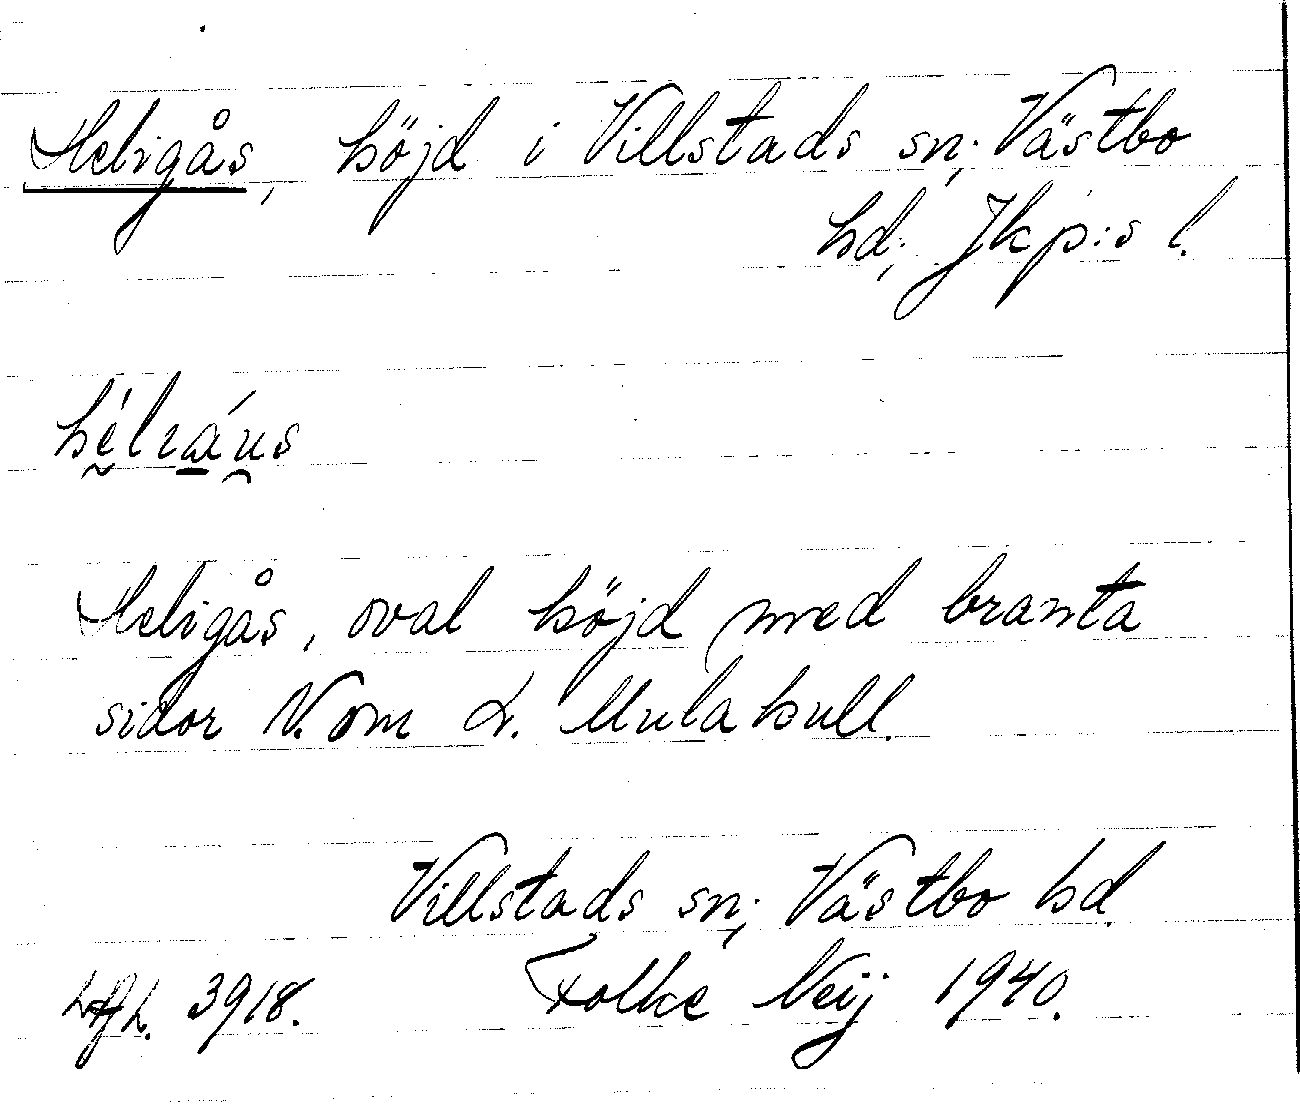 Heligås, höjd i Villstads sn; Västbo
hd; Jkp:s l.
Heligås, oval höjd med branta
sidor N. om L. Mulakull.
Villstads sn; Västbo hd.
3918. Folke Neij 1940.